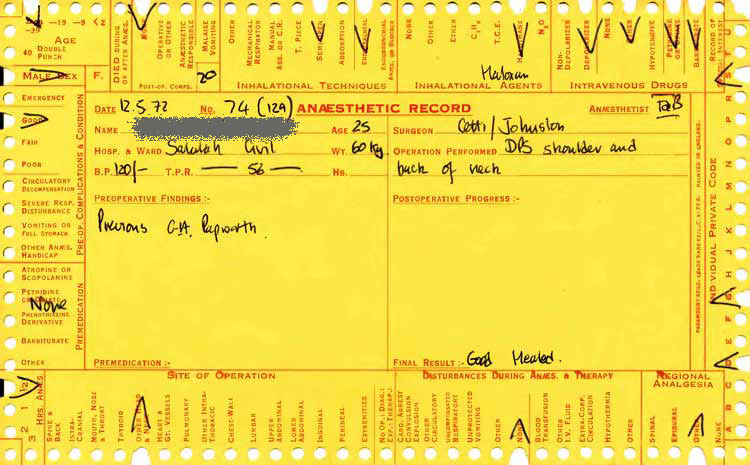 -19 -9 <2
-39
AGE
40 DOUBLE PUNCH
MALE SEX F.
DIED DURING OR AFTER ANÆS.
NONE
OPERATIVE OR OTHER
ANÆSTHETIC RESPONSIBLE
MALAISE VOMITING
OTHER
POST-OP. COMPS.
20
MECHANICAL RESPIRATOR
MANUAL ASS. OR C.R.
T. PIECE
SEMI-OPEN
ABSORPTION
ENDOTRACHEAL
INHALATIONAL TECHNIQUES
NONE
OTHER
ETHER
C₃H₆
T.C.E.
HALOTHANE
N₂O
INHALATIONAL AGENTS
NON-DEPOLARIZER
DEPOLARIZER
NONE
OTHER
HYPOTENSIVE
BARBITURATE
INTRAVENOUS DRUGS
RECORD OF
EMERGENCY
GOOD
FAIR
POOR
CIRCULATORY DECOMPENSATION
SEVERE RESP. DISTURBANCE
VOMITING OR FULL STOMACH
OTHER ANÆS. HANDICAP
PRE-OP. COMPLICATIONS & CONDITION
ATROPINE OR SCOPOLAMINE
PETHIDINE
None
PHENOTHIAZINE DERIVATIVE
BARBITURATE
OTHER
PREMEDICATION
DATE 12.5.72 No. 74 (129) ANÆSTHETIC RECORD ANÆSTHETIST
NAME AGE 25 SURGEON Cetti / Johnston
HOSP. & WARD Salalah Civil WT. 60 kg. OPERATION PERFORMED DPS shoulder and
B.P. 120/- T.P.R. — 56 — HB. back of neck
PREOPERATIVE FINDINGS :- POSTOPERATIVE PROGRESS :-
Previous G.A. Papworth.
PREMEDICATION :- FINAL RESULT :- Good Healed.
PRINTED IN ENGLAND.
INDIVIDUAL PRIVATE CODE
A B C D E F G H I J K L M N O P Q R S T U
3 2 1 ½
HRS. ANÆS.
SITE OF OPERATION
SPINE & BACK
INTRA-CRANIAL
MOUTH, NOSE & THROAT
THYROID
OTHER HEAD & NECK
HEART & GT. VESSELS
PULMONARY
OTHER INTRA-THORACIC
CHEST-WALL
LUMBAR
UPPER ABDOMINAL
LOWER ABDOMINAL
INGUINAL
PERINEAL
EXTREMITIES
DISTURBANCES DURING ANÆS. & THERAPY
CARD. ARREST
CONVULSION
EXPLOSION
OTHER CIRCULATORY
UNCOMPENSATED RESPIRATORY
UNPROTECTED VOMITING
OTHER
NONE
BLOOD TRANSFUSION
OTHER I.V. FLUID
EXTRA-CORP. CIRCULATION
HYPOTHERMIA
OTHER
REGIONAL ANALGESIA
SPINAL
EPIDURAL
OTHER
NONE